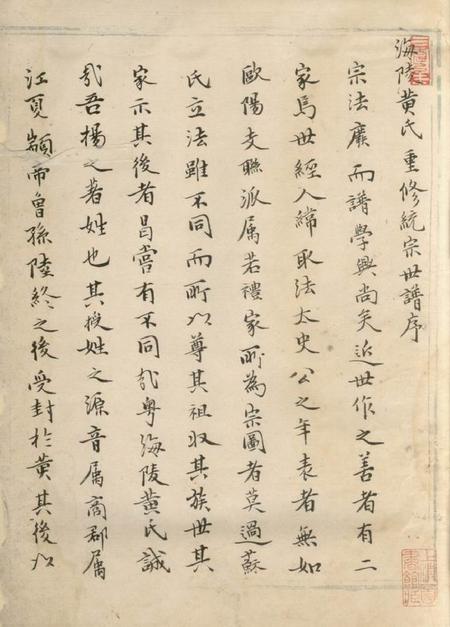 海陵黃氏重修統宗世譜序
宗法廢而譜學興尚矣近世作之善者有二
家焉世經人緯取法太史公之年表者無如
歐陽支聯派属若禮家所為宗圖者莫過蘇
氏立法雖不同而所以尊其祖收其族世其
家示其後者曷嘗有不同㢤粤海陵黃氏誠
㢤吾揚之著姓也其授姓之源音属商郡属
江夏顓帝曾孫陸終之後受封於黃其後以